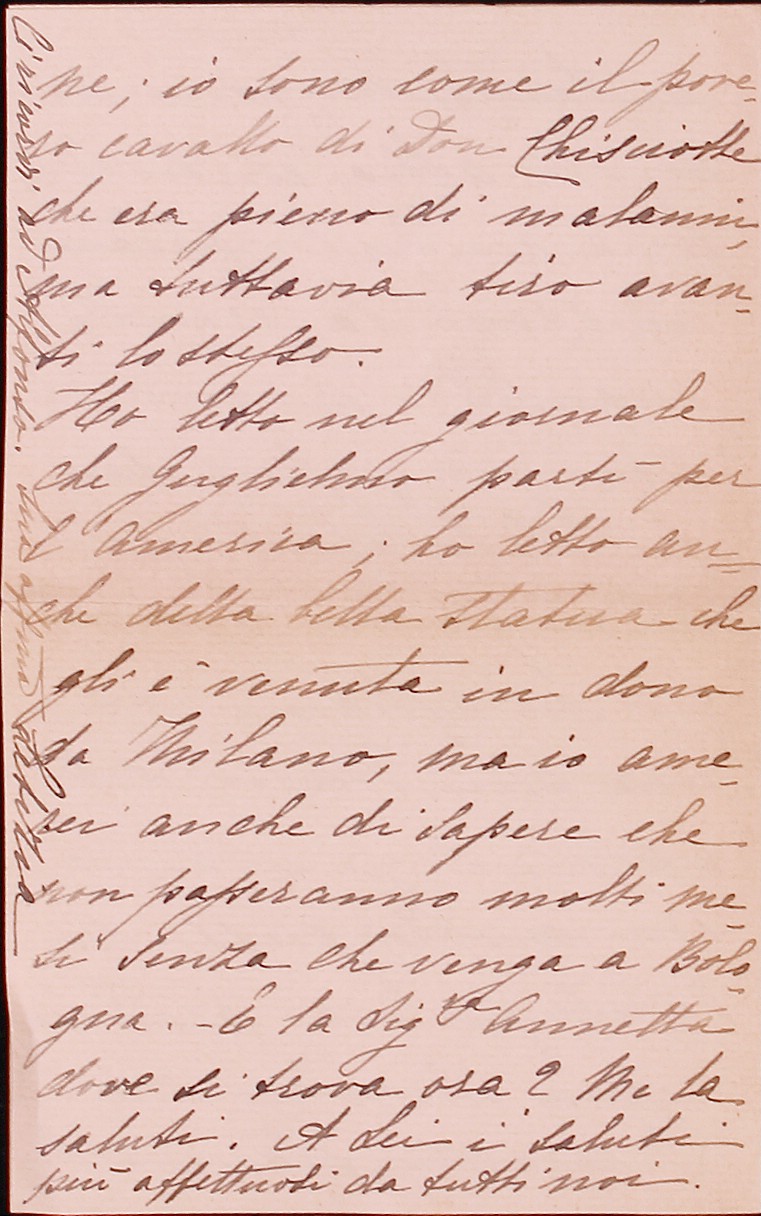 ne; io sono come il pove-
ro cavallo di Don Chisciotte
che era pieno di malanni,
ma tuttavia tiro avan-
ti lo stesso.
Ho letto nel giornale
che Guglielmo partì per
l'America; ho letto an-
che della bella statua che
gli è venuta in dono
da Milano, ma io ame-
rei anche di sapere che
non passeranno molti me-
si senza che venga a Bolo-
gna. - E la Sigra Annetta
dove si trova ora? Me la
saluti. A Lei i saluti
più affettuosi da tutti noi.
Ci ricordi ad Alfonso. Sua affma Letizia